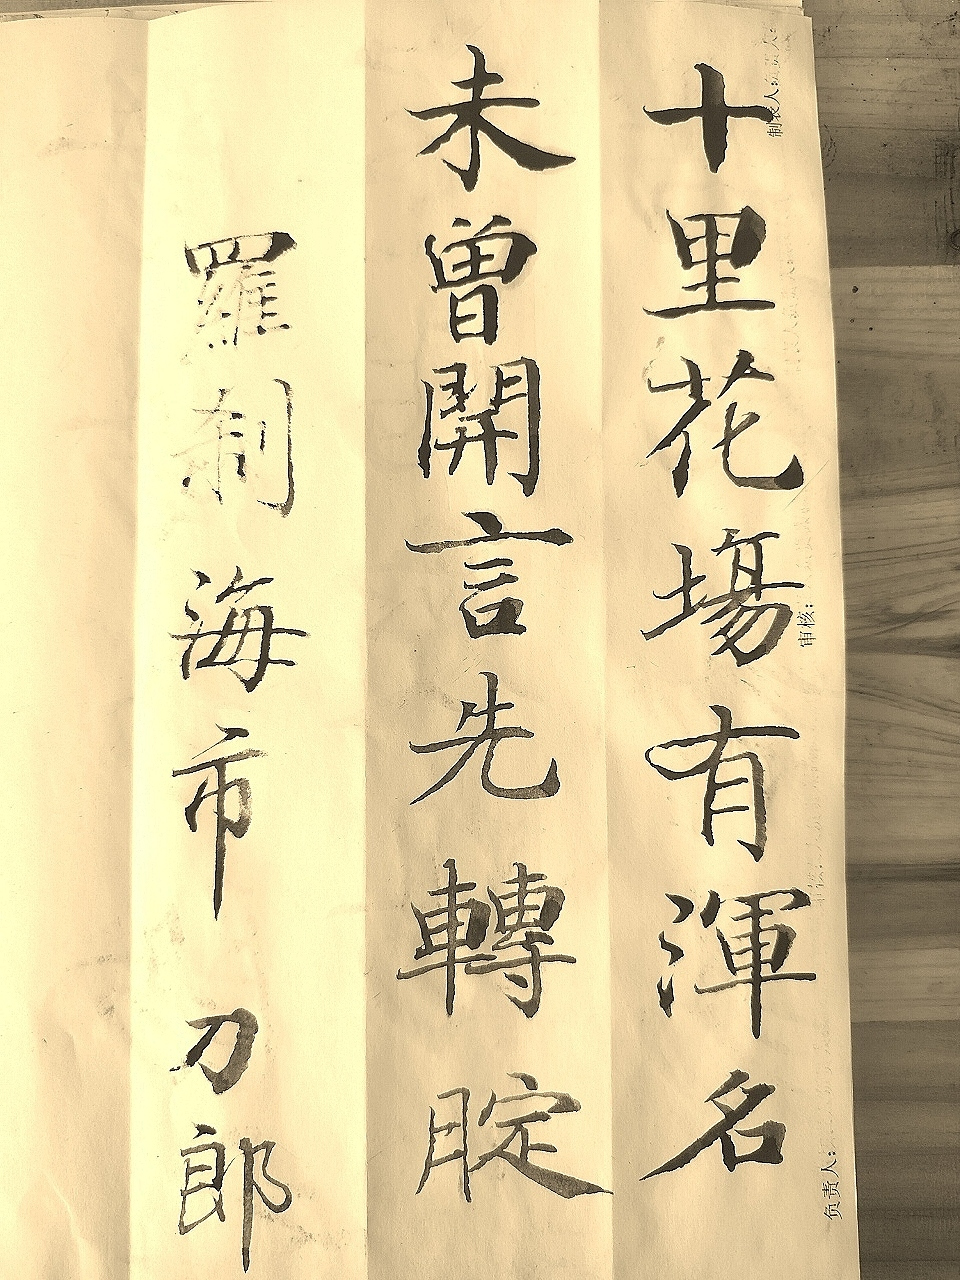 十里花場有渾名
未曾開言先轉腚
羅刹海市 刀郎
制表人:
审核:
负责人: